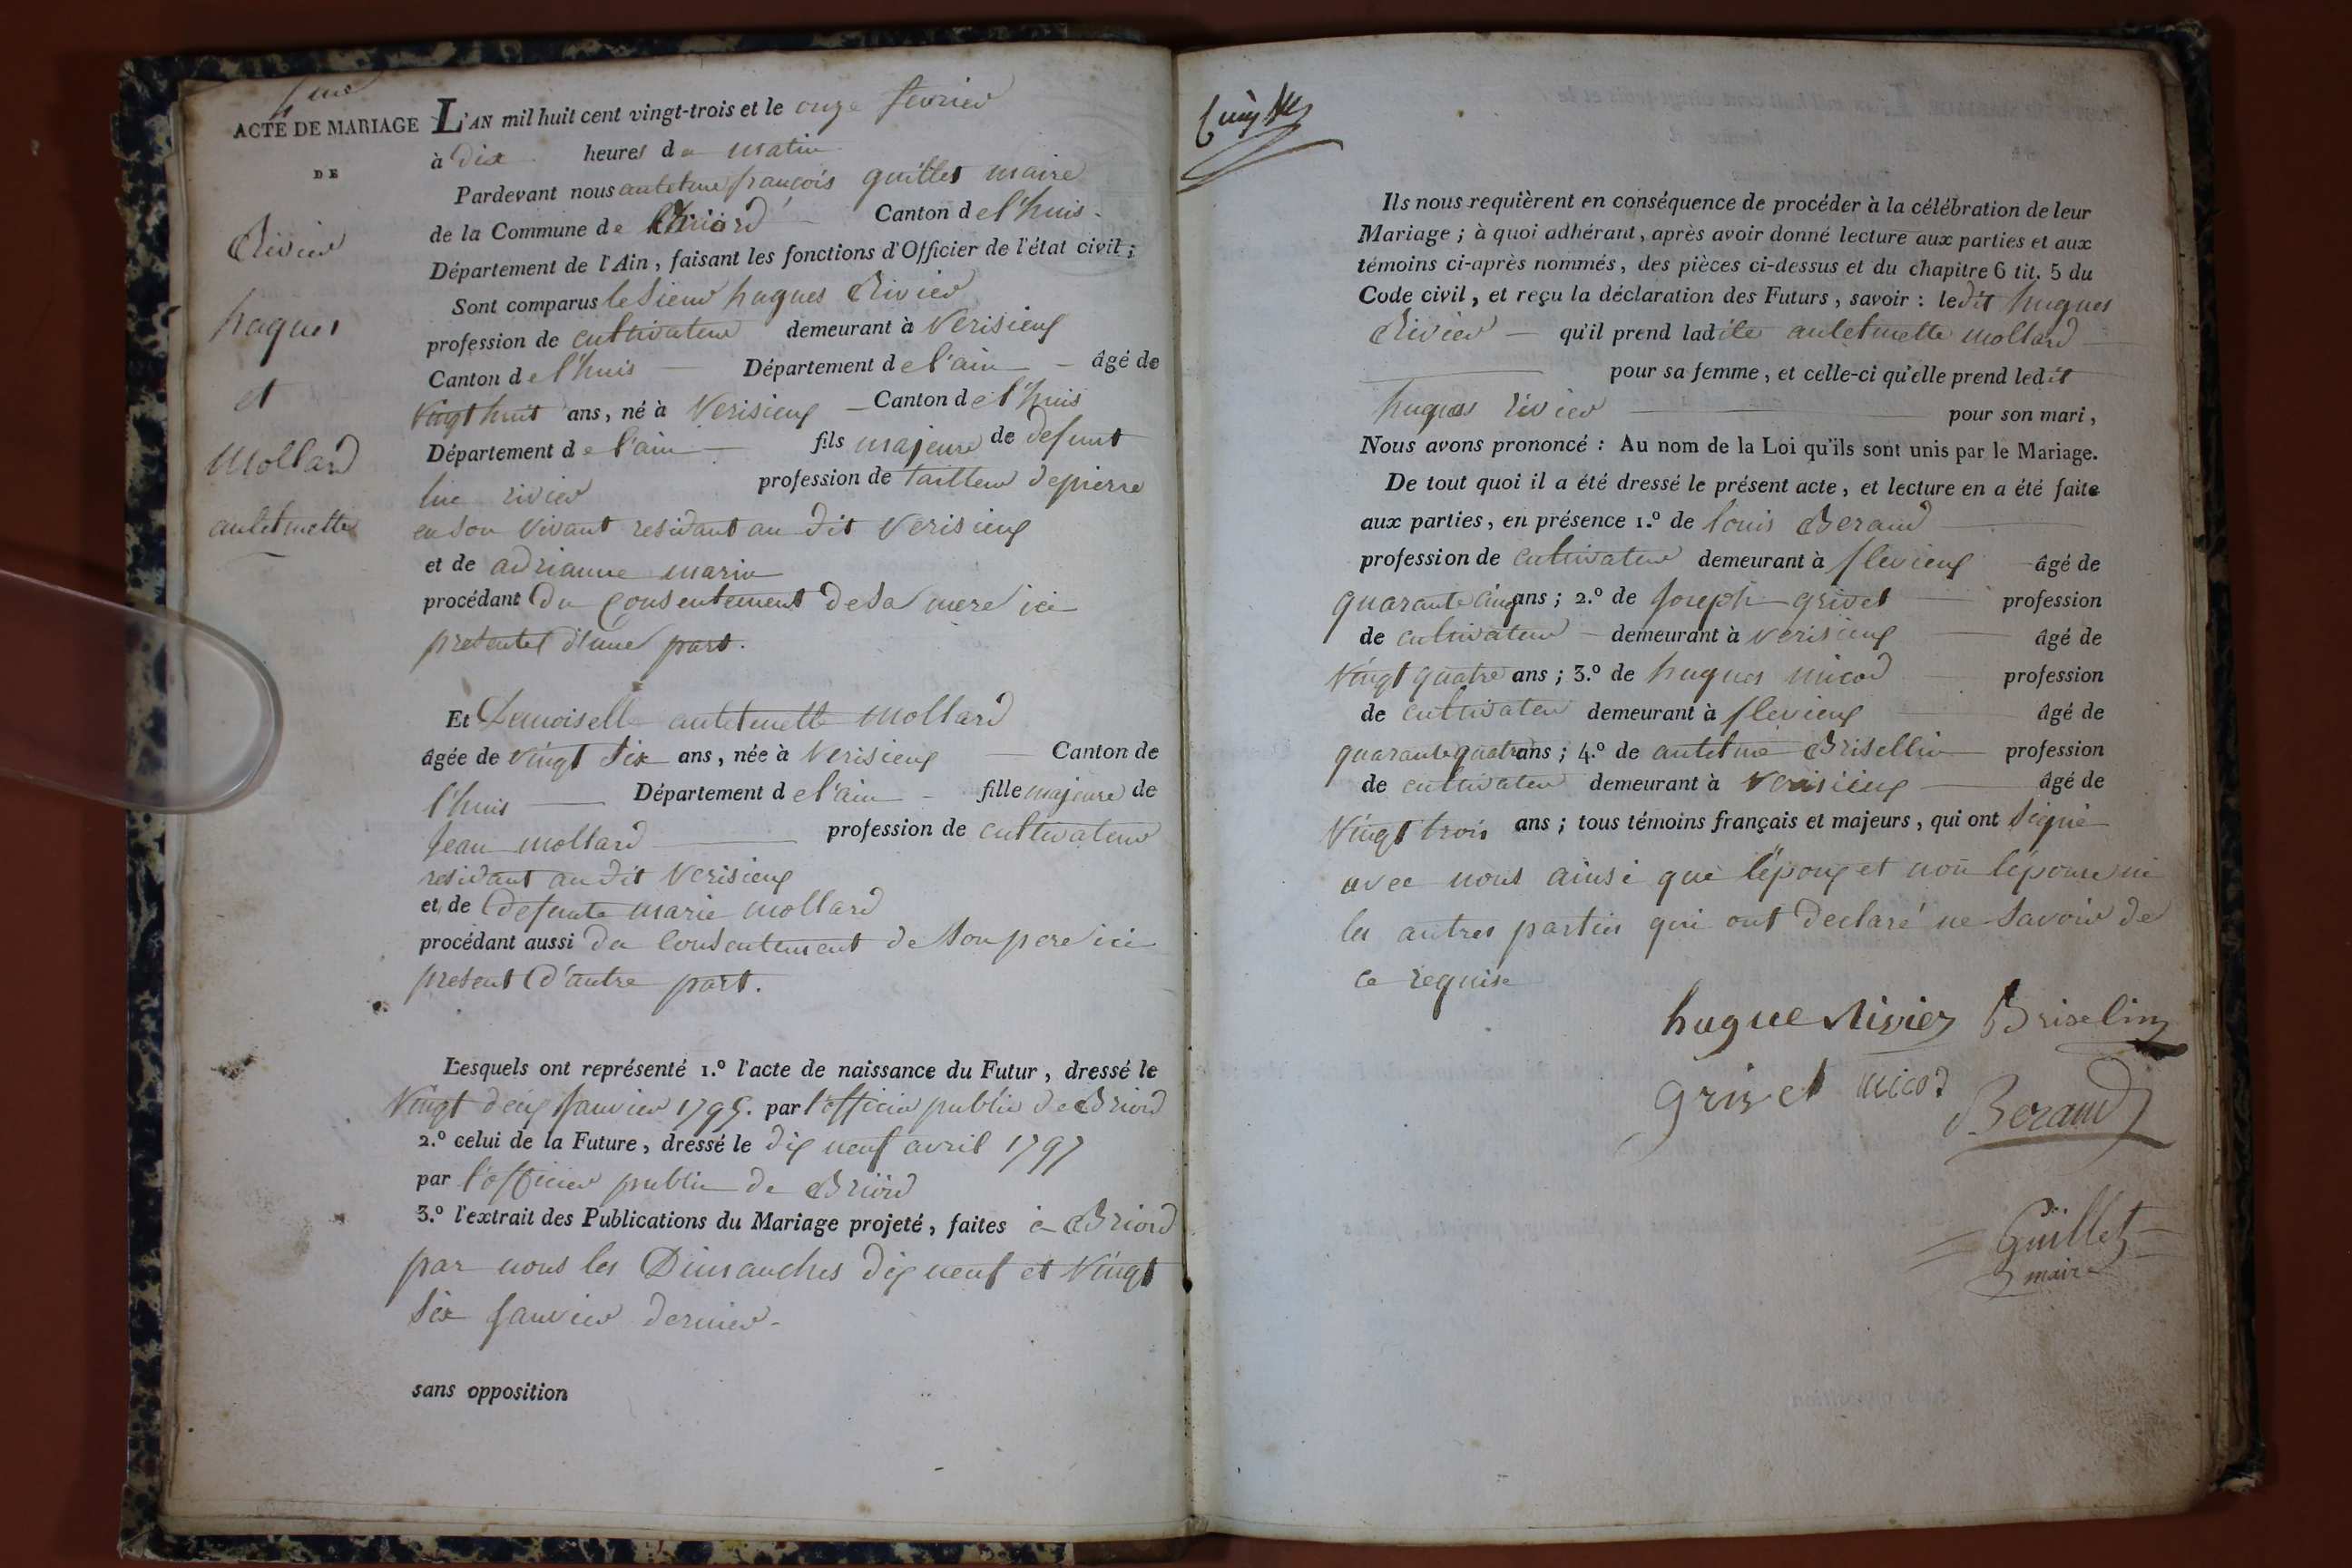 4me
ACTE DE MARIAGE
DE
Rivier
hugues
et
Mollard
antelmette
L'AN mil huit cent vingt-trois et le onze fevrier
à Dix heures du matin
Pardevant nous antelme françois guillet maire
de la Commune de Briord Canton de l'huis
Département de l'Ain, faisant les fonctions d'Officier de l'état civil;
Sont comparus le Sieur hugues Rivier
profession de cultivateur demeurant à Verisieux
Canton de l'huis Département de l'ain âgé de
Vingt huit ans, né à Verisieux Canton de l'huis
Département de l'ain fils majeure de defunt
luc rivier profession de tailleur de pierre
en son vivant residant au dit Verisieux
et de adrianne marin
procédant du Consentement de Sa mere ici
presentes d'une part.
Et Demoiselle antelmette Mollard
âgée de Vingt Six ans, née à Verisieux Canton de
l'huis Département de l'ain fille majeure de
Jean mollard profession de cultivateur
residant au dit Verisieux
et de defunte marie mollard
procédant aussi du Consentement de Son pere ici
present D'autre part.
Lesquels ont représenté 1.º l'acte de naissance du Futur, dressé le
Vingt deux Janvier 1795. par l'officier public de Briord
2.º celui de la Future, dressé le dix neuf avril 1797
par l'officier public de Briord
3.º l'extrait des Publications du Mariage projeté, faites à Briord
par nous les Dimanches dix neuf et Vingt
Six Janvier dernier.
sans opposition
Ils nous requièrent en conséquence de procéder à la célébration de leur
Mariage; à quoi adhérant, après avoir donné lecture aux parties et aux
témoins ci-après nommés, des pièces ci-dessus et du chapitre 6 tit. 5 du
Code civil, et reçu la déclaration des Futurs, savoir: ledit hugues
Rivier qu'il prend ladite antelmette mollard
pour sa femme, et celle-ci qu'elle prend ledit
hugues rivier pour son mari,
Nous avons prononcé: Au nom de la Loi qu'ils sont unis par le Mariage.
De tout quoi il a été dressé le présent acte, et lecture en a été faite
aux parties, en présence 1.º de louis Beraud
profession de cultivateur demeurant à flevieux âgé de
quarante cinq ans; 2.º de Joseph grivet profession
de cultivateur demeurant à verisieux âgé de
Vingt quatre ans; 3.º de hugues micod profession
de cultivateur demeurant à flevieux âgé de
quarante quatre ans; 4.º de antelme Brisellin profession
de cultivateur demeurant à Verisieux âgé de
Vingt trois ans; tous témoins français et majeurs, qui ont Signé
avec nous ainsi que l'époux et non l'épouse ni
les autres parties qui ont declaré ne Savoir de
ce requise
hugue Rivier Briselin
Grivet micod
Beraud
Guillet
maire